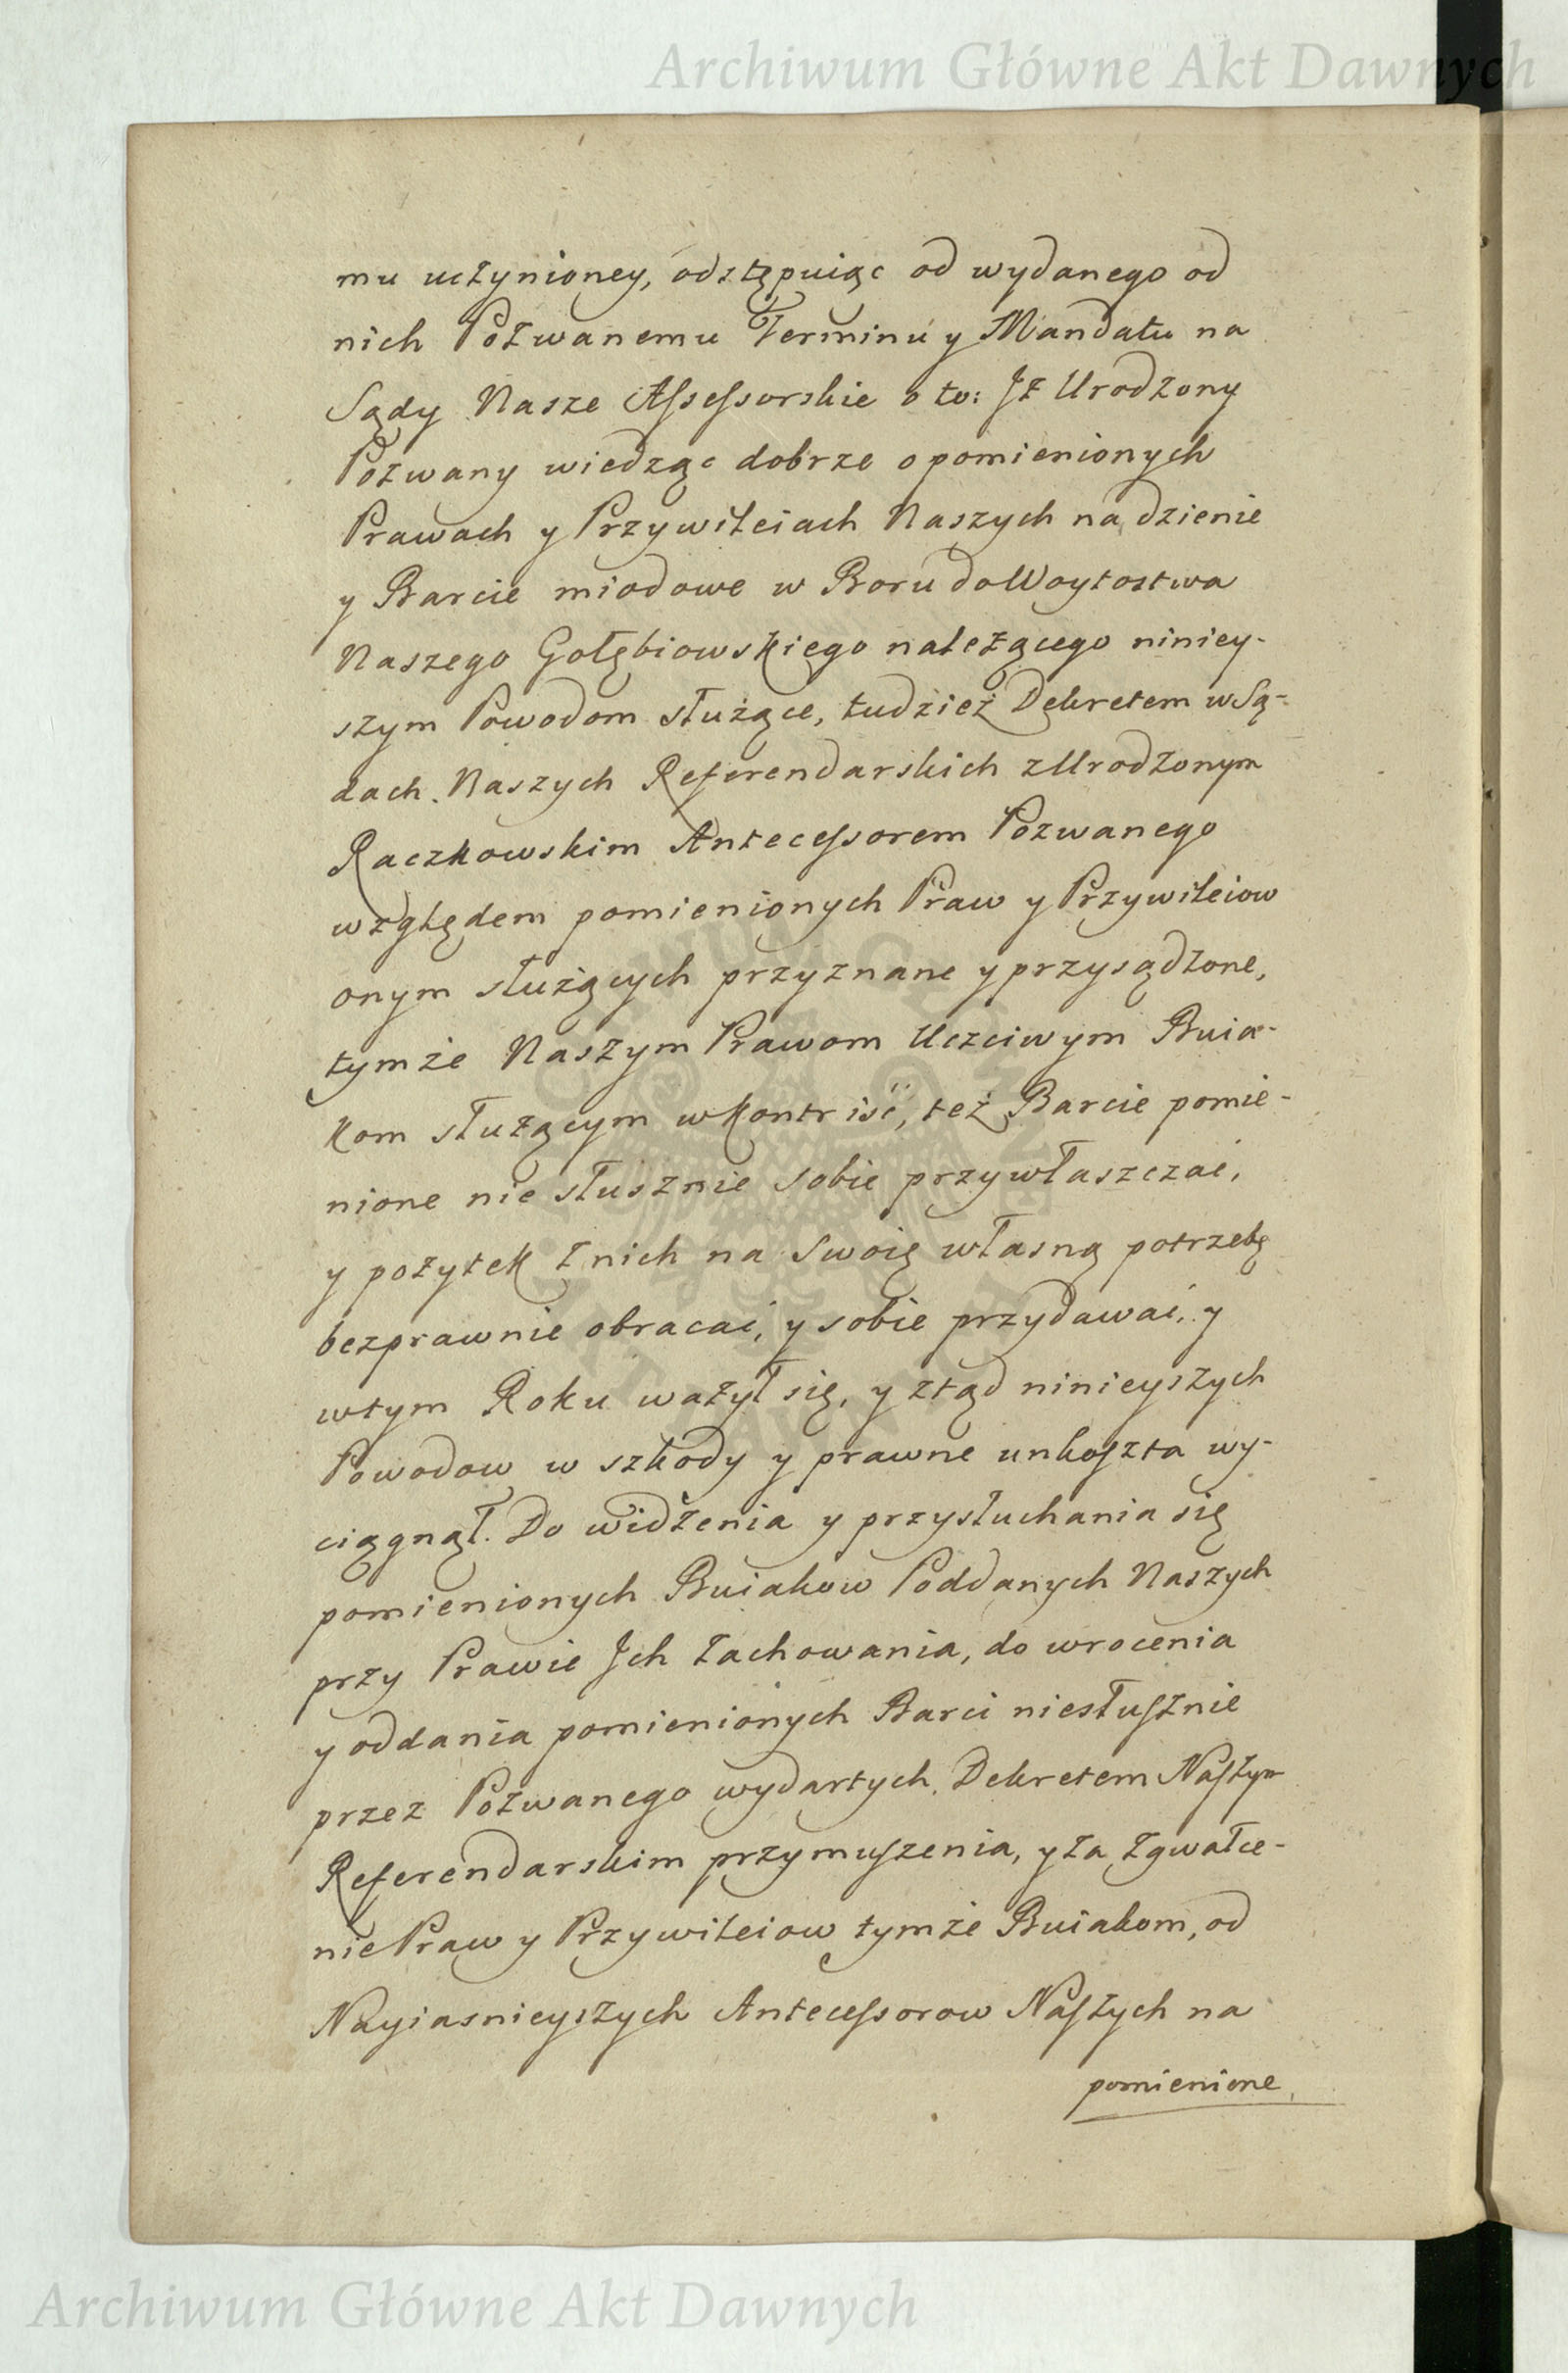 Archiwum Główne Akt Dawnych
mu uczynioney, odstępuiąc od wydanego od
nich Pozwanemu Terminu y Mandatu na
Sądy Nasze Assessorskie o to: Jż Urodzony
Pozwany wiedząc dobrze o pomienionych
Prawach y Przywileiach Naszych na dzienie
y Barcie miodowe w Boru do Woytostwa
Naszego Gołębiowskiego należącego niniey-
szym Powodom służące, tudzież Dekretem w Są-
dach Naszych Referendarskich z Urodzonym
Raczkowskim Antecessorem Pozwanego
względem pomienionych Praw y Przywileiow
onym służących przyznane y przysądzone,
tymże Naszym Prawom Uczciwym Buia-
kom służącym w kontr iść, też Barcie pomie-
nione nie słusznie sobie przywłaszczać,
y pożytek z nich na swoię własną potrzebę
bezprawnie obracać, y sobie przydawać, y
w tym Roku ważył się, y ztąd ninieyszych
Powodow w szkody y prawne unkoszta wy-
ciągnął. Do widzenia y przysłuchania się
pomienionych Buiakow Poddanych Naszych
przy Prawie Jch zachowania, do wrocenia
y oddania pomienionych Barci niesłusznie
przez Pozwanego wydartych, Dekretem Naszym
Referendarskim przymuszenia, y za zgwałce-
nie Praw y Przywileiow tymże Buiakom, od
Nayiasnieyszych Antecessorow Naszych na
pomienione
Archiwum Główne Akt Dawnych